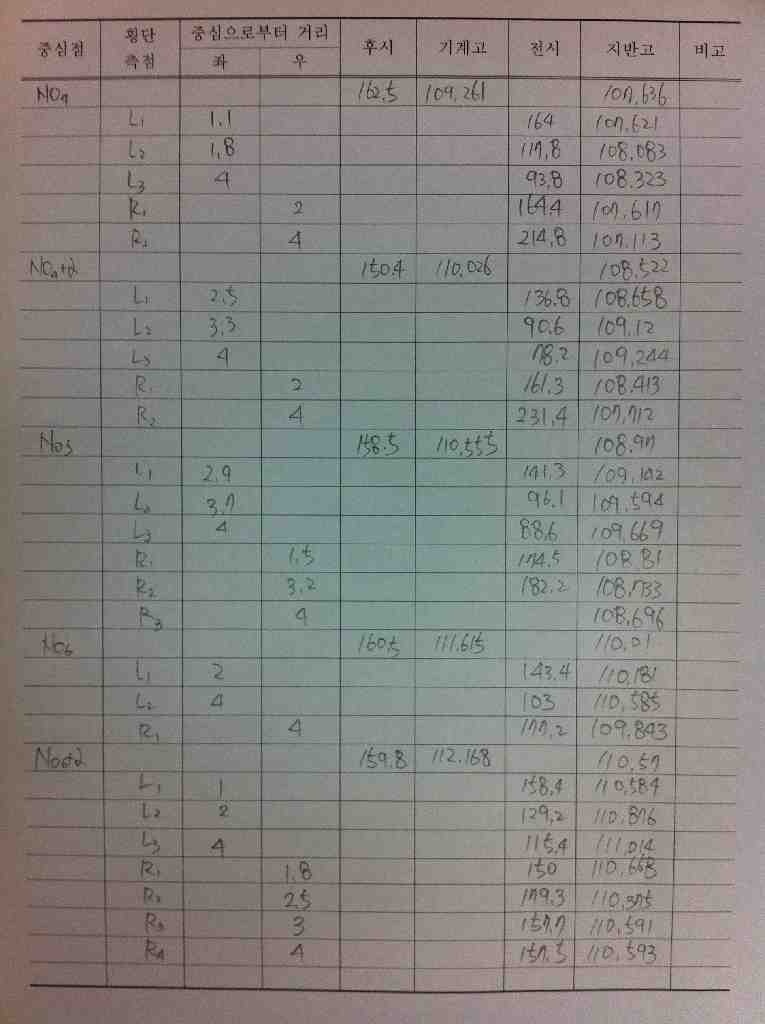 중심점 횡단 측점 중심으로부터 거리 좌 우 후시 기계고 전시 지반고 비고
NO4 162.5 109.261 107.636
L1 1.1 164 107.621
L2 1.8 117.8 108.083
L3 4 93.8 108.323
R1 2 164.4 107.617
R2 4 214.8 107.113
NO4+2 150.4 110.026 108.522
L1 2.5 136.8 108.658
L2 3.3 90.6 109.12
L3 4 78.2 109.244
R1 2 161.3 108.413
R2 4 231.4 107.712
NO5 158.5 110.555 108.97
L1 2.9 141.3 109.142
L2 3.7 96.1 109.594
L3 4 88.6 109.669
R1 1.5 174.5 108.81
R2 3.2 182.2 108.733
R3 4 108.696
NO6 160.5 111.615 110.01
L1 2 143.4 110.181
L2 4 103 110.585
R1 4 177.2 109.843
NO6+2 159.8 112.168 110.57
L1 1 158.4 110.584
L2 2 129.2 110.876
L3 4 115.4 111.014
R1 1.8 150 110.668
R2 2.5 179.3 110.375
R3 3 157.7 110.591
R4 4 157.5 110.593